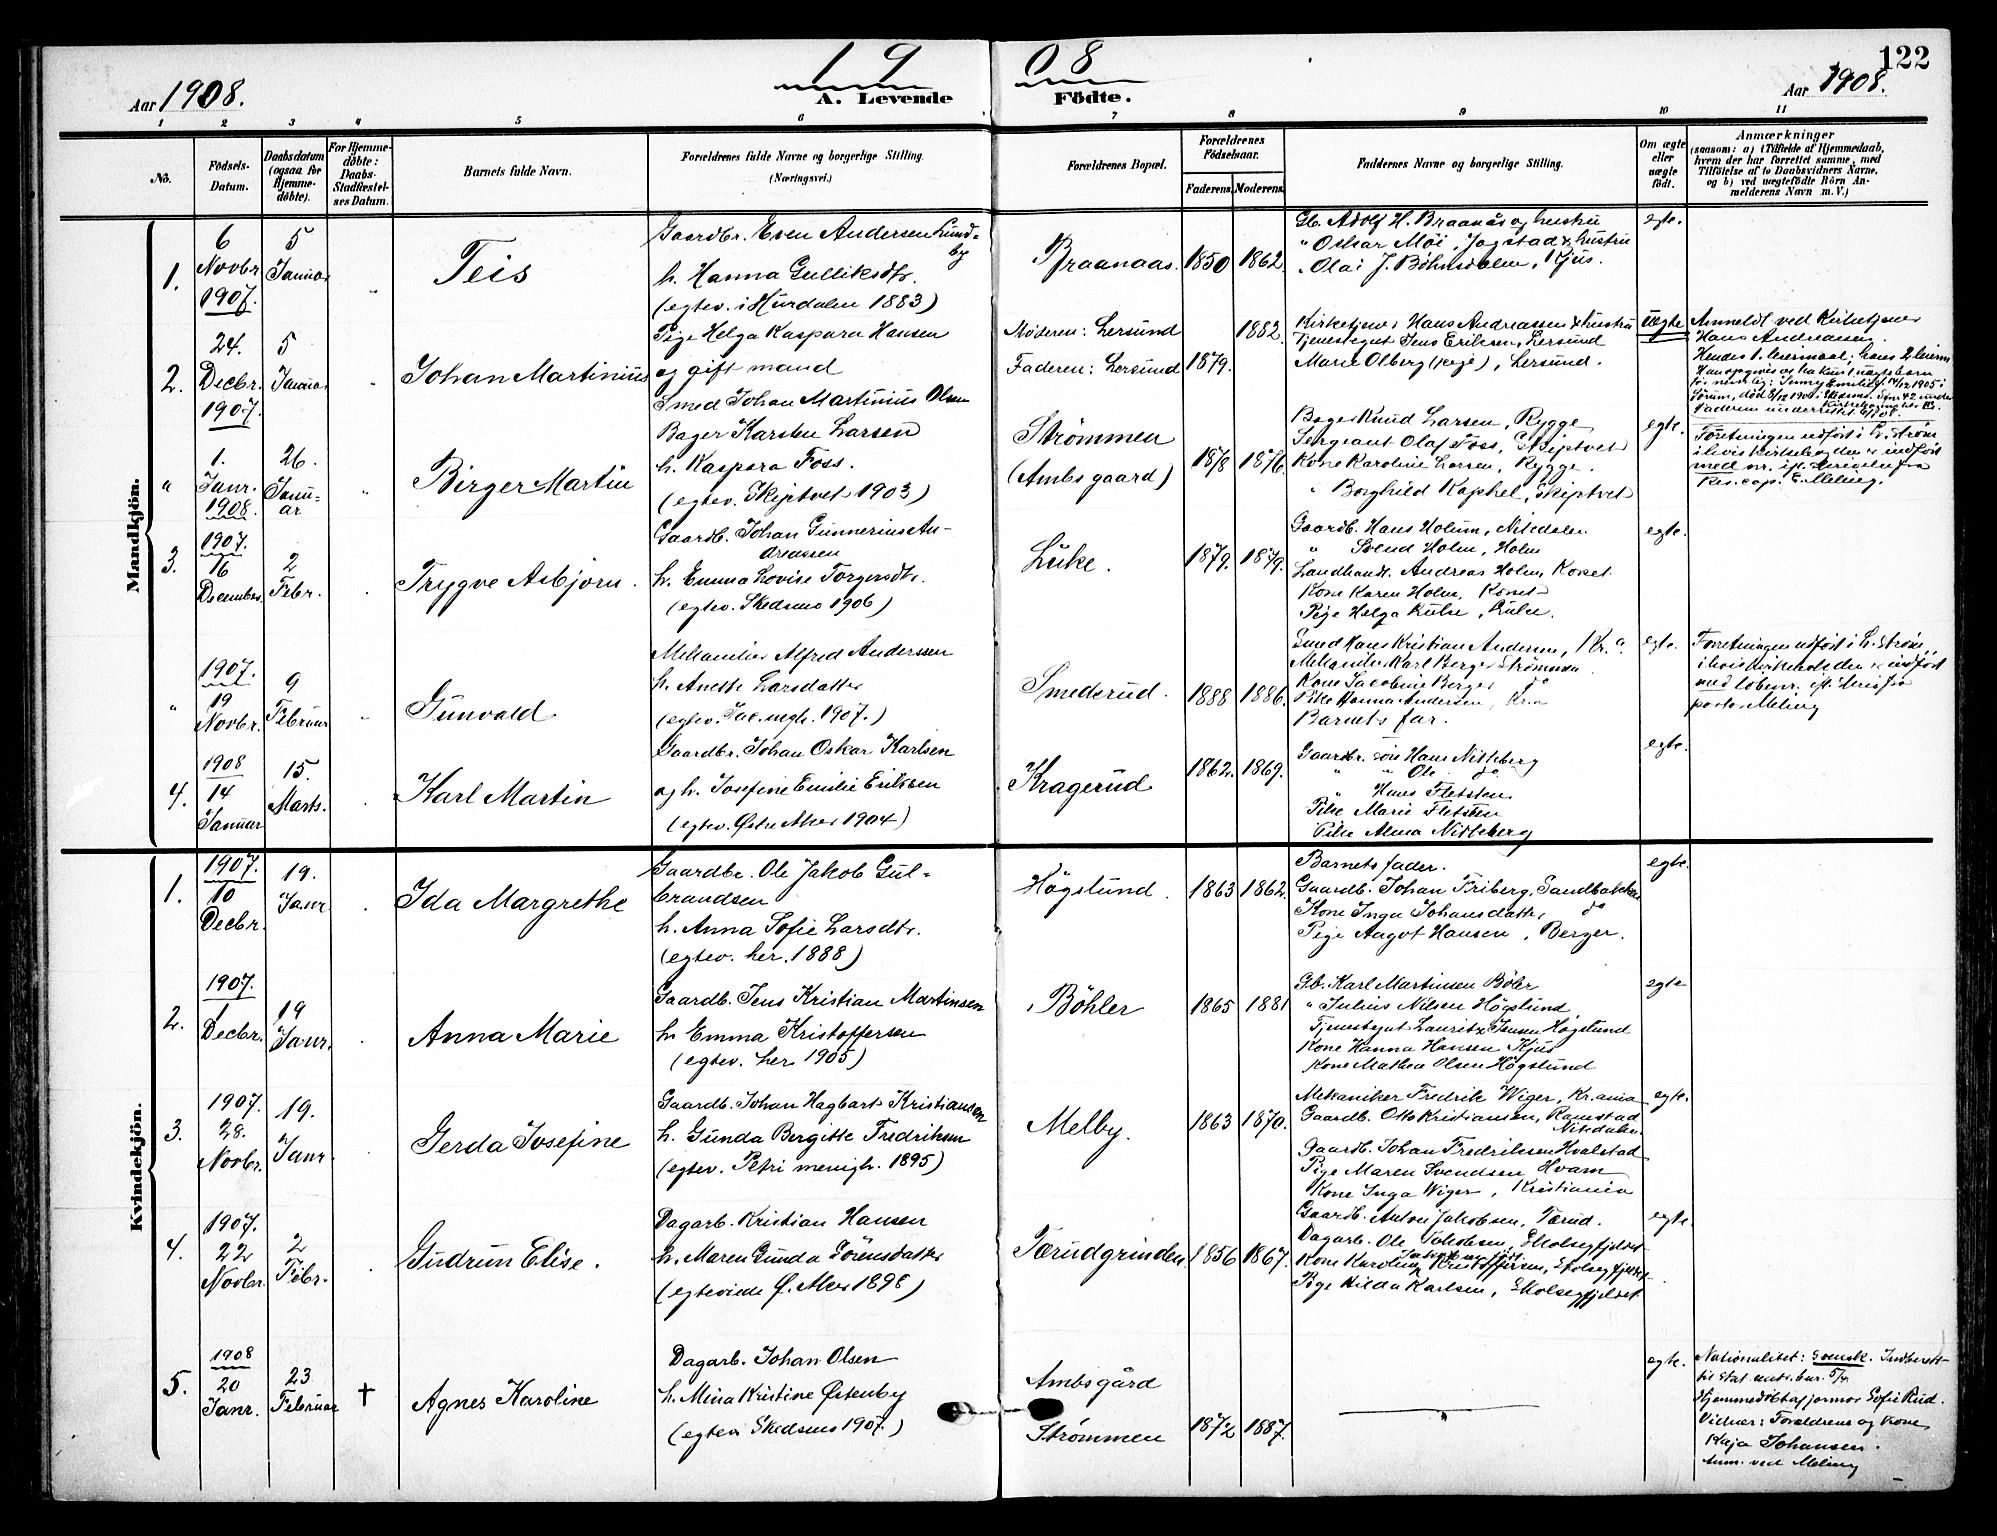 19 08
122
Aar 1908.
A. Levende Födte.
Aar 1908.
1 2 3 4 5 6 7 8 9 10 11
No.
Födsels-Datum.
Daabsdatum (ogsaa for Hjemme-döbte).
For Hjemme-döbte: Daabs-Stadfæstel-ses Datum.
Barnets fulde Navn.
Forældrenes fulde Navne og borgerlige Stilling.
(Næringsvei.)
Forældrenes Bopæl.
Forældrenes Födselsaar.
Faderens. Moderens.
Faddernes Navne og borgerlige Stilling.
Om ægte eller uægte födt.
Anmærkninger
(saasom: a) i Tilfælde af Hjemmedaab, hvem der har forrettet samme, med Tilföielse af to Daabsvidners Navne, og b) ved uægtefödte Börn An-melderens Navn m. V.)
Mandkjön.
1.
6 Novbr. 1907.
5 Januar
Teis
Gaardbr. Even Andersen Lund-
by
h. Hanna Gulliksdtr.
(egtev. i Hurdalen 1883)
Braanaas.
1850 1862
Gb. Adolf H. Braanås og hustru
" Oskar Möi, Jogstad & hustru
" Olai J. Böhnsdalen, Kjus.
egte.
2.
24. Decbr. 1907.
5 Januar
Johan Martinius
Pige Helga Kaspara Hansen
og gift mand
Smed Johan Martinius Olsen
Moderen: Lersund
Faderen: Lersund
1879. 1882.
Kirketjener Hans Andreassen & hustru
Tjenestegut Jens Eriksen, Lersund
Marie Olberg (Pige), Lersund.
uegte
Anmeldt ved Kirketjener
Hans Andreassen.
"
1. Janr. 1908.
26. Janu-ar
Birger Martin
Bager Karsten Larsen
h. Kaspara Foss.
(egtev. Skiptvet 1903)
Strømmen
(Ambsgaard)
1878 1876.
Bager Knud Larsen, Rygge
Sergeant Olaf Foss, Skiptvet
Kone Karoline Larsen, Rygge.
" Borghild Kaphel, Skiptvet
egte.
Forretningen udført i L. Strøm
i hvis kirkebog den er indført
med nr. ifl. skrivelse fra
Res. cap. E. Meling.
3.
1907. 16 December.
2 Febr.
Trygve Asbjørn.
Gaardb. Johan Gunnerius An-
dreassen
h. Emma Lovise Torgersdtr.
(egtev. Skedsmo 1906)
Luke.
1879. 1879.
Gaardb. Hans Holum, Nitedalen
" Svend Holm, Holm
Landhandl. Andreas Holm, Kolset.
Kone Karen Holm, Kolset
Pige Helga Kulse, Kulse.
egte.
"
1907. 19 Novbr.
9 Februar
Gunvald
Alfred Anderssen
h. Anette Larsdatter
(egtev. Jac. mgh. 1907.)
Smederud.
1888 1886.
Smed Hans Kristian Andersen, Kr.a.
Karl Berger Strømmen
Kone Jacobine Berger do
Pike Hanna Andersen, Kr.a
Barnets far.
egte.
Forretningen udført i L. Strøm,
i hvis kirkebok den er indført
med løbenr. ifl. skriv fra
pastor Meling
4.
1908 14 Januar
15. Marts.
Karl Martin
Gaardbr. Johan Oskar Karlsen
og h. Josefine Emilie Eriksen
(egtev. Østre Aker 1904)
Kragerud
1862. 1869.
Gaardbr. søn Hans Nitteberg
" " Ole do
" Hans Fletsten
Pike Marie Fletsten
Pike Alma Nitteberg
egte.
Kvindekjön.
1.
1907. 10 Decbr.
19. Janr.
Ida Margrethe
Gaardbr. Ole Jakob Gul-
brandsen
h. Anna Sofie Larsdtr.
(egtev. her. 1888)
Högslund.
1863 1862.
Barnets fader.
Gaardb. Johan Friberg, Sandbakken
Kone Inga Johansdatter, do
Pige Aagot Hansen, Berger.
egte.
2.
1907. 1 Decbr.
19 Janr.
Anna Marie
Gaardb. Jens Kristian Martinsen
h. Emma Kristoffersen
(egtev. her 1905)
Böhler
1865 1881
Gb. Karl Martinsen Böler
" Julius Nilsen Högslund
Tjenestegut Lauritz Jensen Högslund
Kone Hanna Hansen Kjus
Kone Mathea Olsen Högslund
egte
3.
1907. 28. Novbr.
19. Janr
Gerda Josefine
Gaardb. Johan Hagbart Kristiansen
h. Gunda Bergitte Fredriksen
(egtev. Petri menigh. 1895)
Melby.
1863 1870.
Mekaniker Fredrik Wiger, Kr.ania
Gaardb. Otto Kristiansen, Ramstad
Nitedalen.
Gaardb. Johan Fredriksen Hvalstad
Pige Maren Svendsen Hvam
Kone Inga Wiger, Kristiania
egte.
4.
1907. 22 Novbr
2 Febr.
Gudrun Elise.
Dagarb. Kristian Hansen
h. Maren Gunda Sörensdatter
(egteviede Ø. Aker 1898)
Tærudgrinden
1856 1867.
Gaardb. Anton Jakobsen, Tærud.
Dagarb. Ole Jakobsen, Skolsegfjeldet
Kone Karoline Kristoffersen, Skolsegfjeldet
Pige Hilda Karlsen, Skolsegfjeldet
egte.
5.
1908 20 Janr.
23 Februar
†
Agnes Karoline
Dagarb. Johan Olsen
h. Mina Kristine Østenby
(egtev Skedsmo 1907.)
Ambsgård
Strømmen
1872 1887.
egte.
Nationalitet: Svensk. Indberett-
til stat. centr. bur. 5/4.
Hjemmedöbt af jormor Sofie Rud.
Vidner: Forældrene og Kone
Kaja Johansen.
Anm. ved Meling